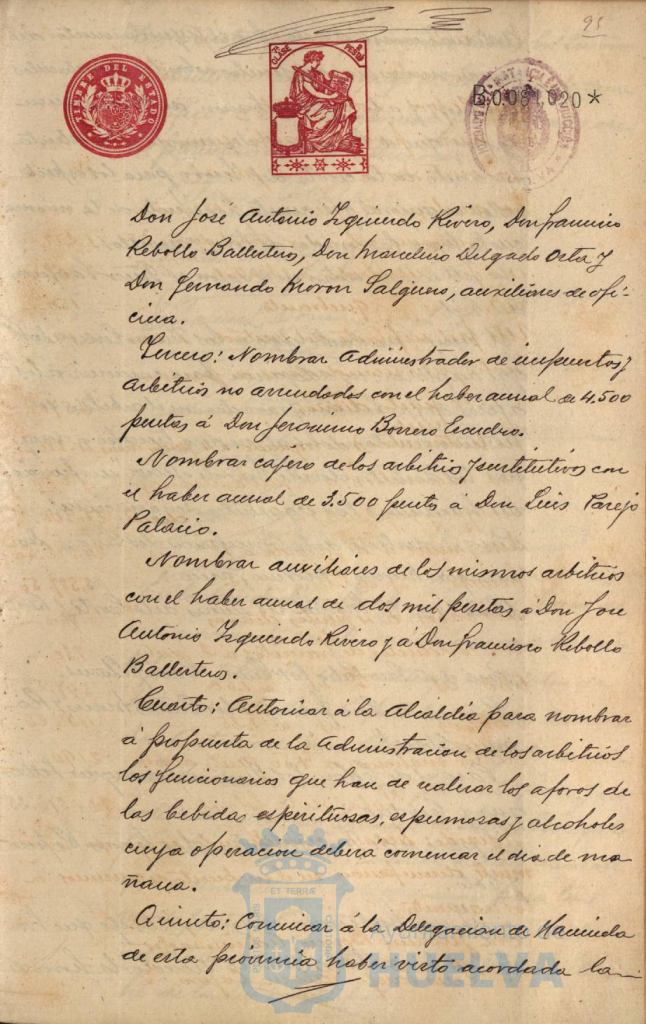 95
TIMBRE DEL ESTADO
CLASE
PESETA
B.0.081.020*
HUELVA
Don José Antonio Izquierdo Rivero, Don Francisco
Rebollo Ballesteros, Don Marcelino Delgado Orta y
Don Fernando Moron Salguero, auxiliares de ofi-
cina.
Tercero: Nombrar Administrador de impuestos y
arbitrios no arrendados con el haber anual de 4.500
pesetas á Don Jeronimo Borrero Escudero.
Nombrar cajero de los arbitrios y sustitutivos con
el haber anual de 3.500 pesetas á Don Luis Parejo
Palacio.
Nombrar auxiliares de los mismos arbitrios
con el haber anual de dos mil pesetas á Don Jose
Antonio Izquierdo Rivero y á Don Francisco Rebollo
Ballesteros.
Cuarto: Autorizar á la Alcaldía para nombrar
á propuesta de la Administracion de los arbitrios
los funcionarios que han de realizar los aforos de
las bebidas espirituosas, espumosas y alcoholes
cuya operacion deberá comenzar el dia de ma
ñana.
Quinto: Comunicar á la Delegacion de Hacienda
de esta provincia haber visto acordada la
ET TERRÆ
Ayuntamiento de
HUELVA